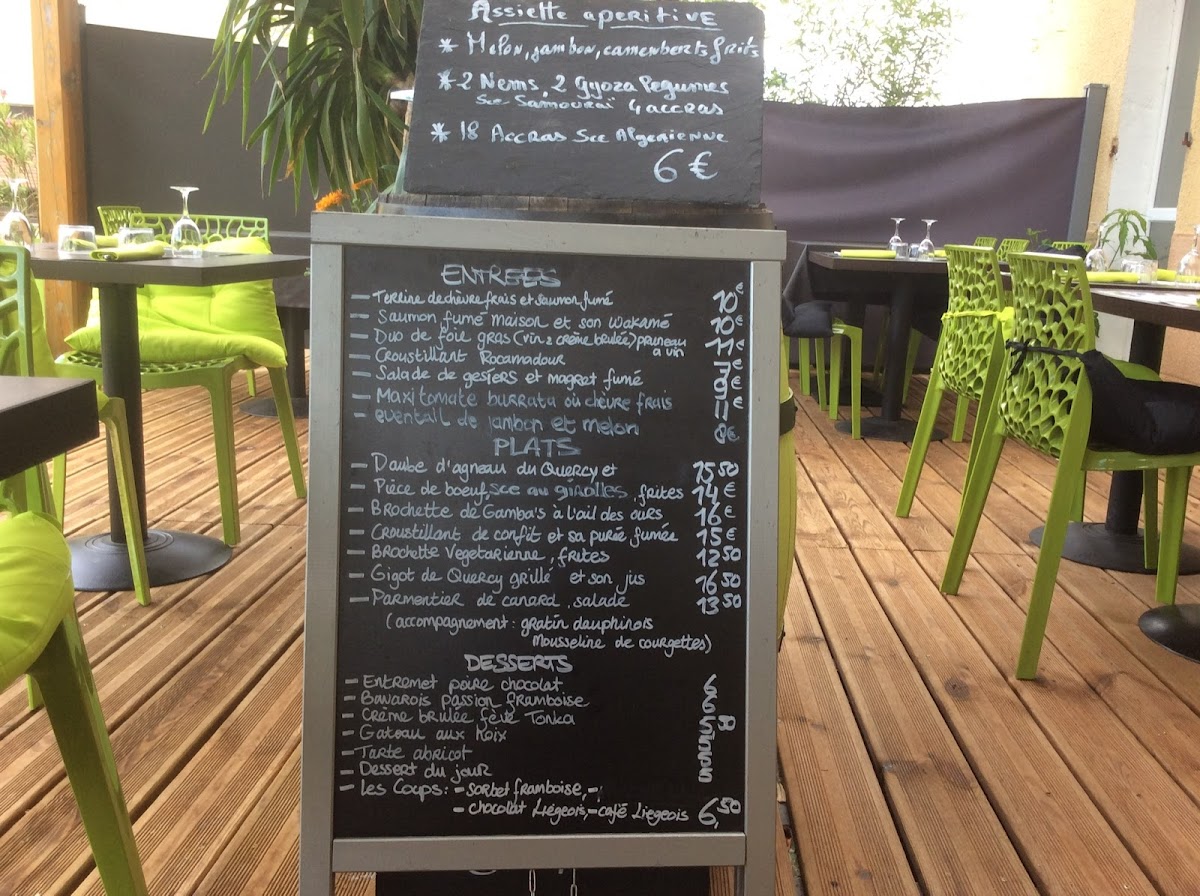 Assiette aperitive
* Melon, jambon, camemberts frits
* 2 Nems, 2 Gyoza Legumes
Sce Samouraï 4 accras
* 18 Accras Sce Algerienne
6 €
ENTREES
- Terrine de chèvre frais et saumon fumé 10€
- Saumon fumé maison et son wakamé 10€
- Duo de foie gras (vin & crème brulée) pruneau a vin 11€
- Croustillant Rocamadour 7€
- Salade de gesiers et magret fumé 9€
- Maxi tomate burrata où chèvre frais 11€
- eventail de jambon et melon 8€
PLATS
- Daube d'agneau du Quercy et 15 50
- Pièce de boeuf, sce au girolles, frites 14€
- Brochette de Gamba's à l'ail des ours 16€
- Croustillant de confit et sa purée fumée 15€
- Brochette Vegetarienne, frites 12 50
- Gigot de Quercy grillé et son jus 16 50
- Parmentier de canard, salade 13 50
(accompagnement: gratin dauphinois
Mousseline de courgettes)
DESSERTS
- Entremet poire chocolat 6
- Bavarois passion framboise 6
- Crème brulée fève Tonka 5
- Gateau aux Noix 5
- Tarte abricot 5
- Dessert du jour 5
- Les Coups: - sorbet framboise, -
- chocolat Liégeois, - café Liegeois 6,50